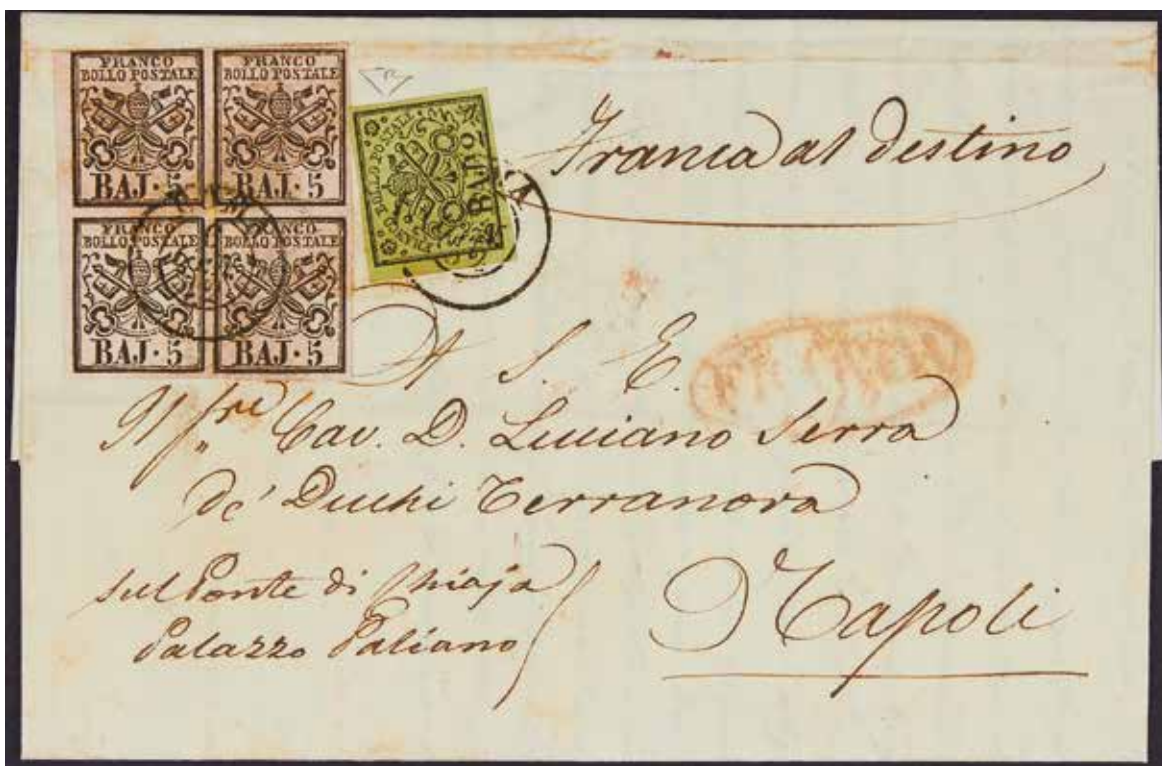 FRANCO
BOLLO POSTALE
BAJ. 5
FRANCO
BOLLO POSTALE
BAJ. 5
FRANCO
BOLLO POSTALE
BAJ. 5
FRANCO
BOLLO POSTALE
BAJ. 5
FRANCO BOLLO POSTALE
Franca al destino
A S. E.
Cav. D. Luciano Serra
de' Duchi Terranova
sul Ponte di Chiaja
Palazzo Paliano
Napoli